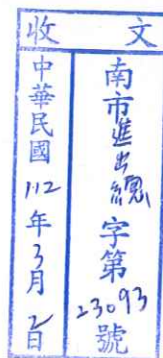 收文
南市進出總字第23093號
中華民國112年3月2日